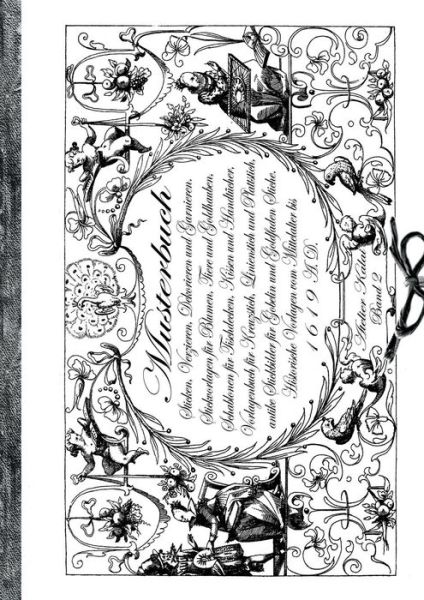 Musterbuch
Sticken, Verzieren, Dekorieren und Garnieren.
Stickvorlagen für Blumen, Tiere und Goldhauben,
Schablonen für Tischdecken, Kissen und
Vorlagenbuch für Kreuzstich, Linienstich und Plattstich,
antike Stickbilder für Gobelin und Goldfaden Sticke.
Historische Vorlagen vom Mittelalter bis
1619 A.D.
Band 2